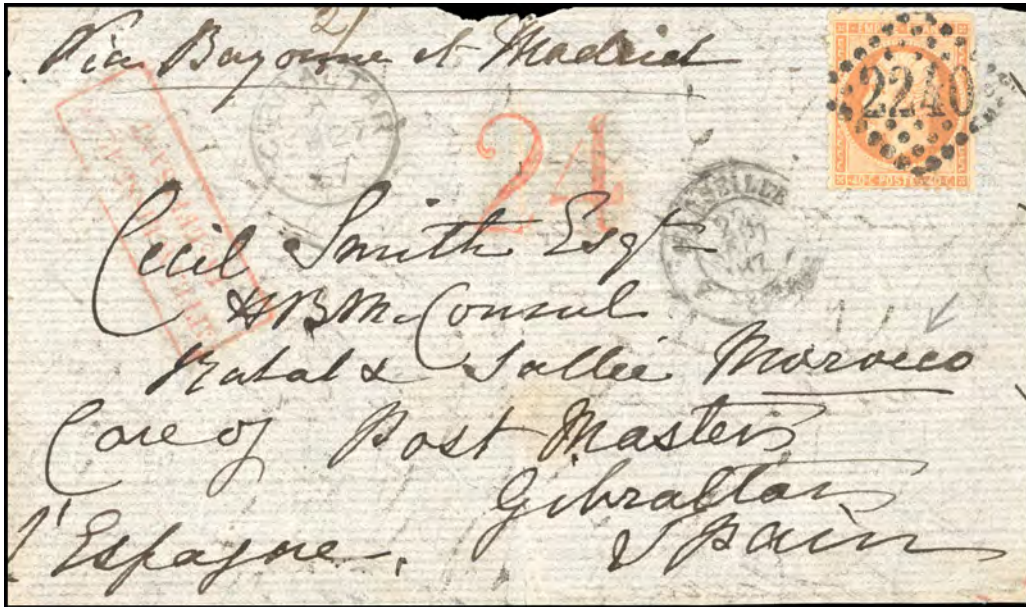 2/
Via Bayonne et Madrid
2240
24
40 C POSTES 40 C
MARSEILLE
Cecil Smith Esqr
HBM. Consul
Rabat & Sallee Morocco
Care of Post Master
Gibraltar
Spain
l'Espagne.